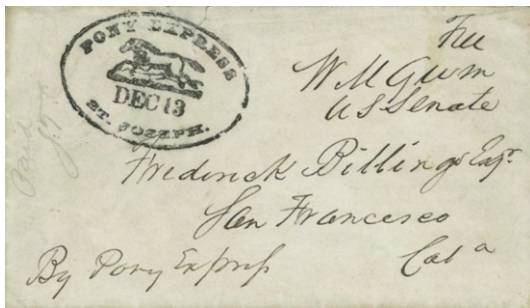 PONY EXPRESS
DEC 13
ST. JOSEPH.
Free
W M Gwin
US Senate
Frederick Billings Esqr.
San Francesco
Cala
By Pony Express
Paid